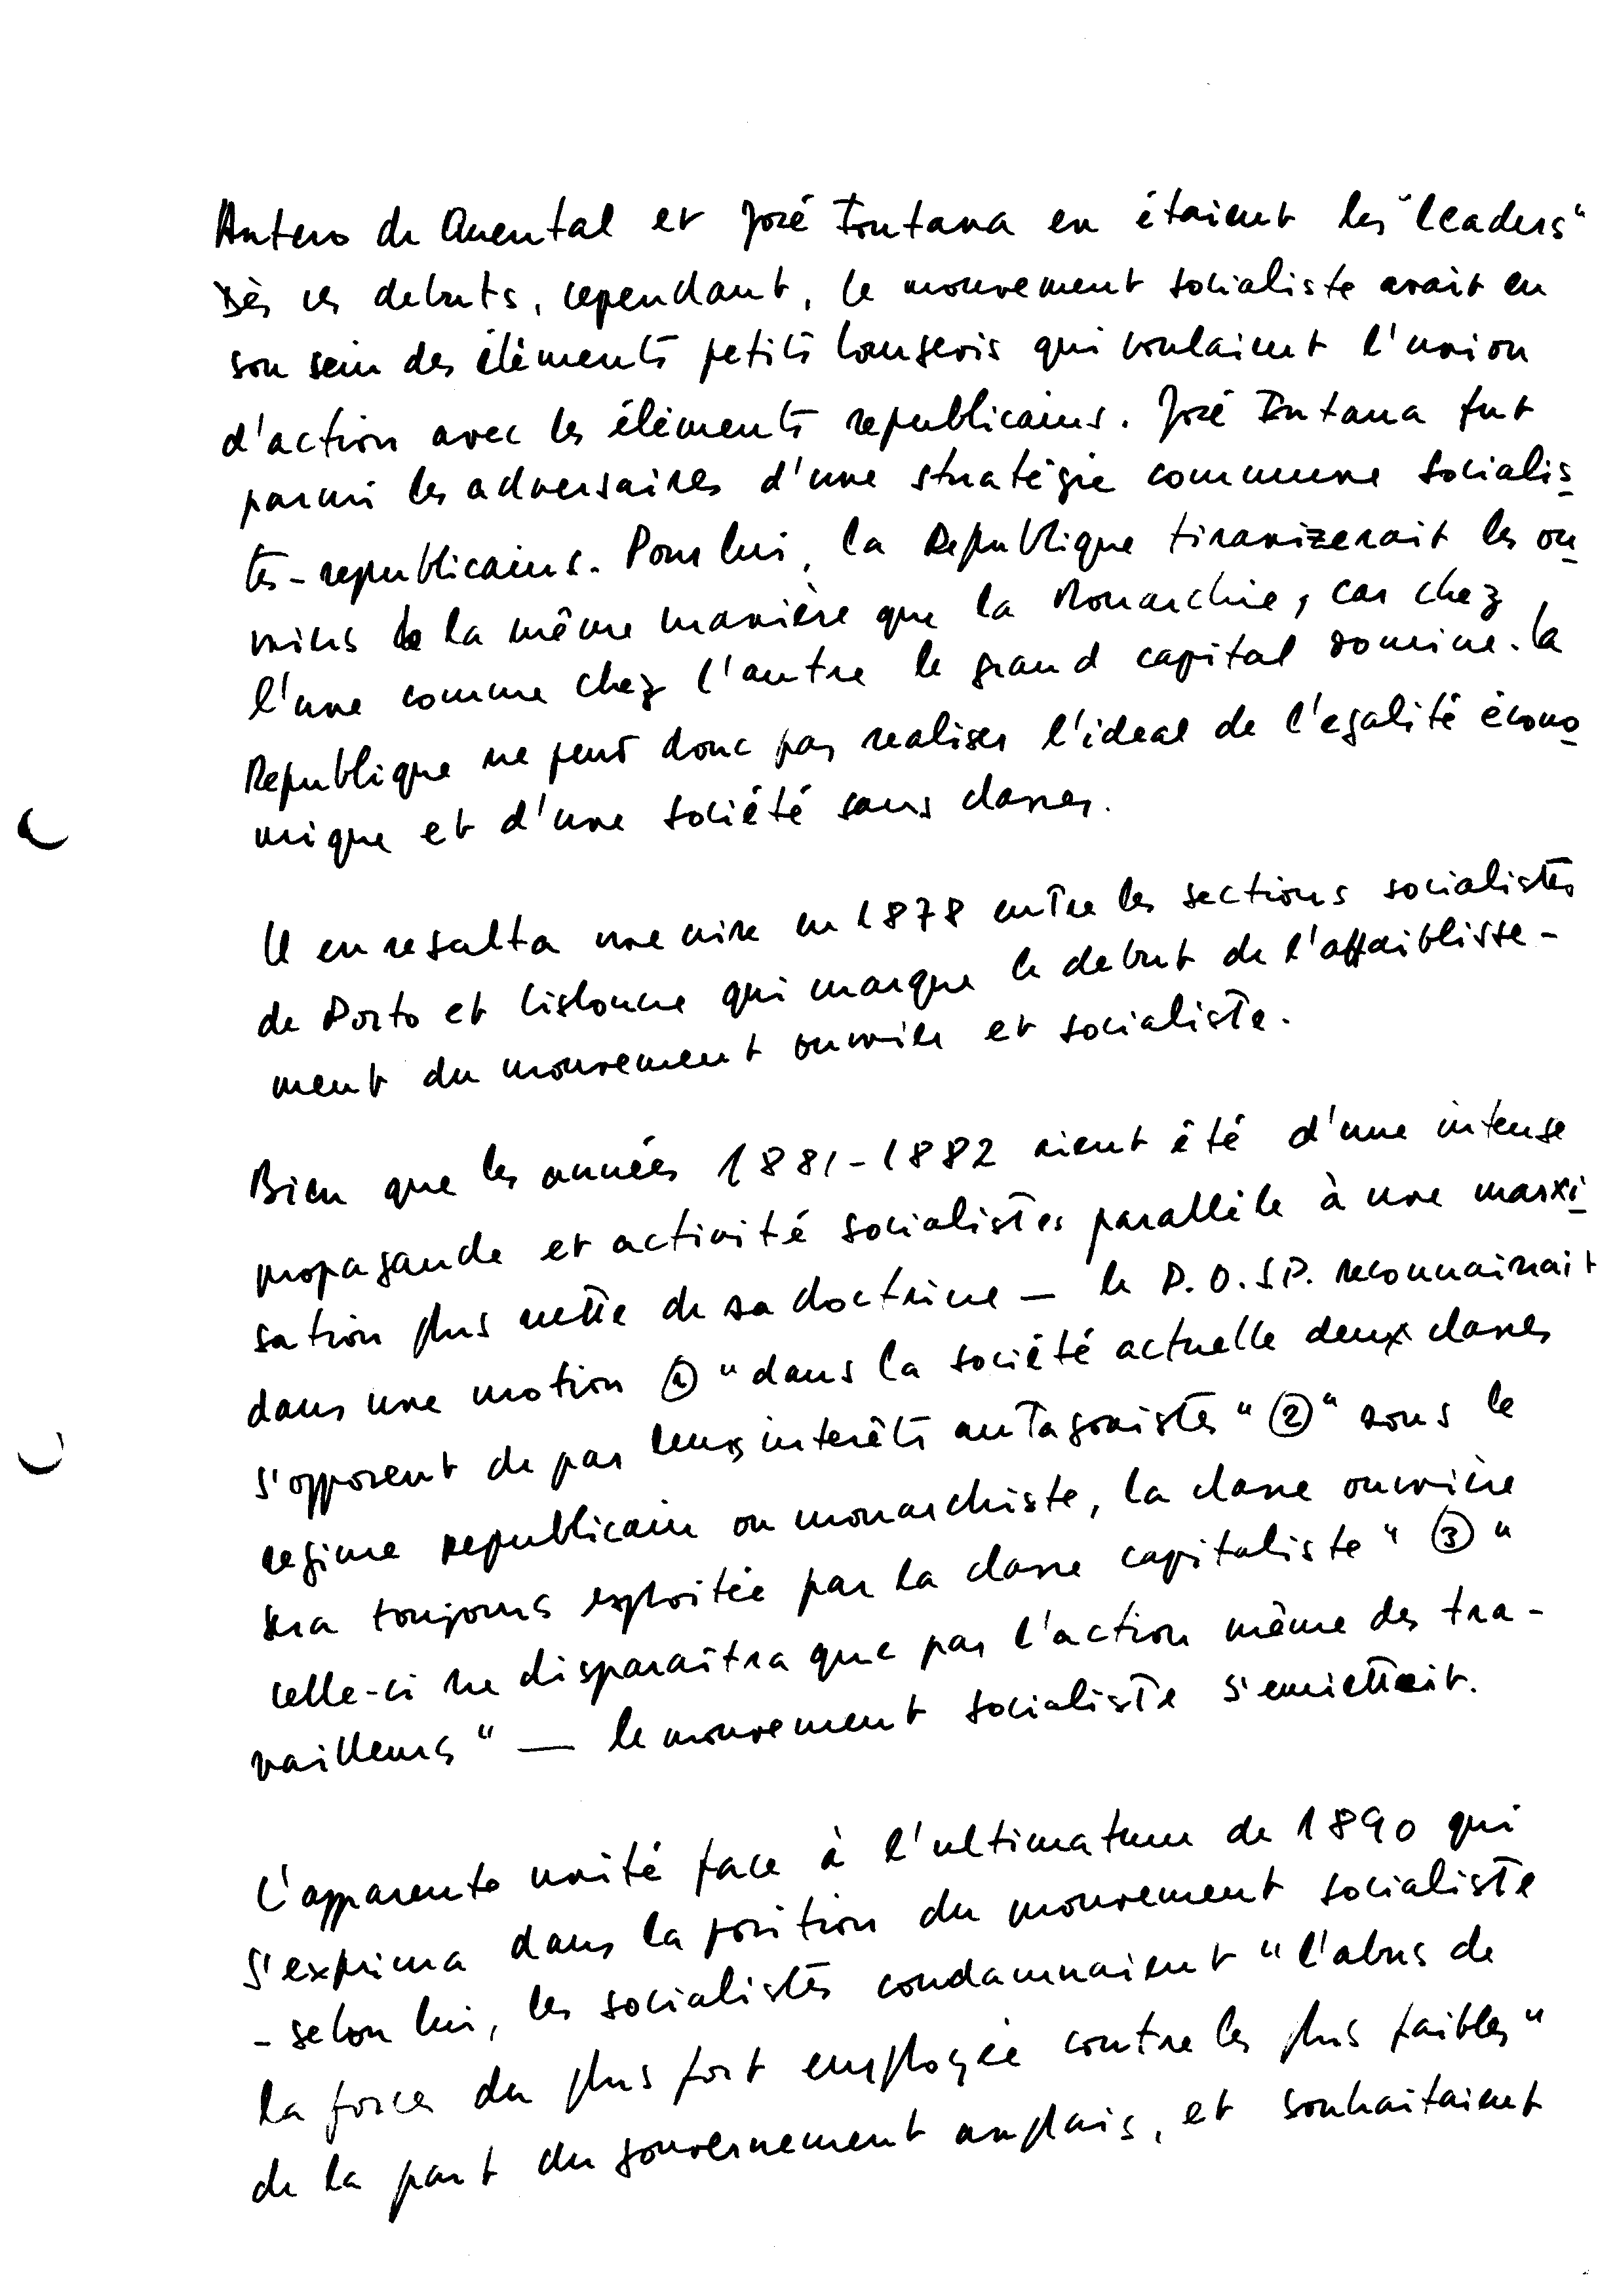 Antero de Quental et José Fontana en étaient les "leaders"
Dès ces debuts, cependant, le mouvement socialiste avait en
son sein des élèments petits bourgeois qui voulaient l'union
d'action avec les élèments republicains. José Fontana fut
parmi les adversaires d'une stratégie commune socialis-
tes-republicains. Pour lui, la Republique tiranizerait les ou-
vriers de la même manière que la Monarchie, car chez
l'une comme chez l'autre le grand capital domine. La
Republique ne peut donc pas realiser l'ideal de l'egalité écono-
mique et d'une société sans classes.
Il en resulta une crise en 1878 entre les sections socialistes
de Porto et Lisbonne qui marque le debut de l'affaiblisse-
ment du mouvement ouvrier et socialiste.
Bien que les années 1881-1882 aient été d'une intense
propagande et activité socialistes parallèle à une marxi-
sation plus nette de sa doctrine — le P.O.S.P. reconnaissait
dans une motion ① "dans la société actuelle deux classes
s'opposent de par leurs interêts antagonistes" ② "sous le
regime republicain ou monarchiste, la classe ouvrière
sera toujours exploitée par la classe capitaliste" ③ "
celle-ci ne disparaîtra que par l'action même des tra-
vailleurs" — le mouvement socialiste s'emiettait.
L'apparente unité face à l'ultimatum de 1890 qui
s'exprima dans la position du mouvement socialiste
- selon lui, les socialistes condamnaient "l'abus de
la force du plus fort employée contre les plus faibles"
de la part du gouvernement anglais, et souhaitaient